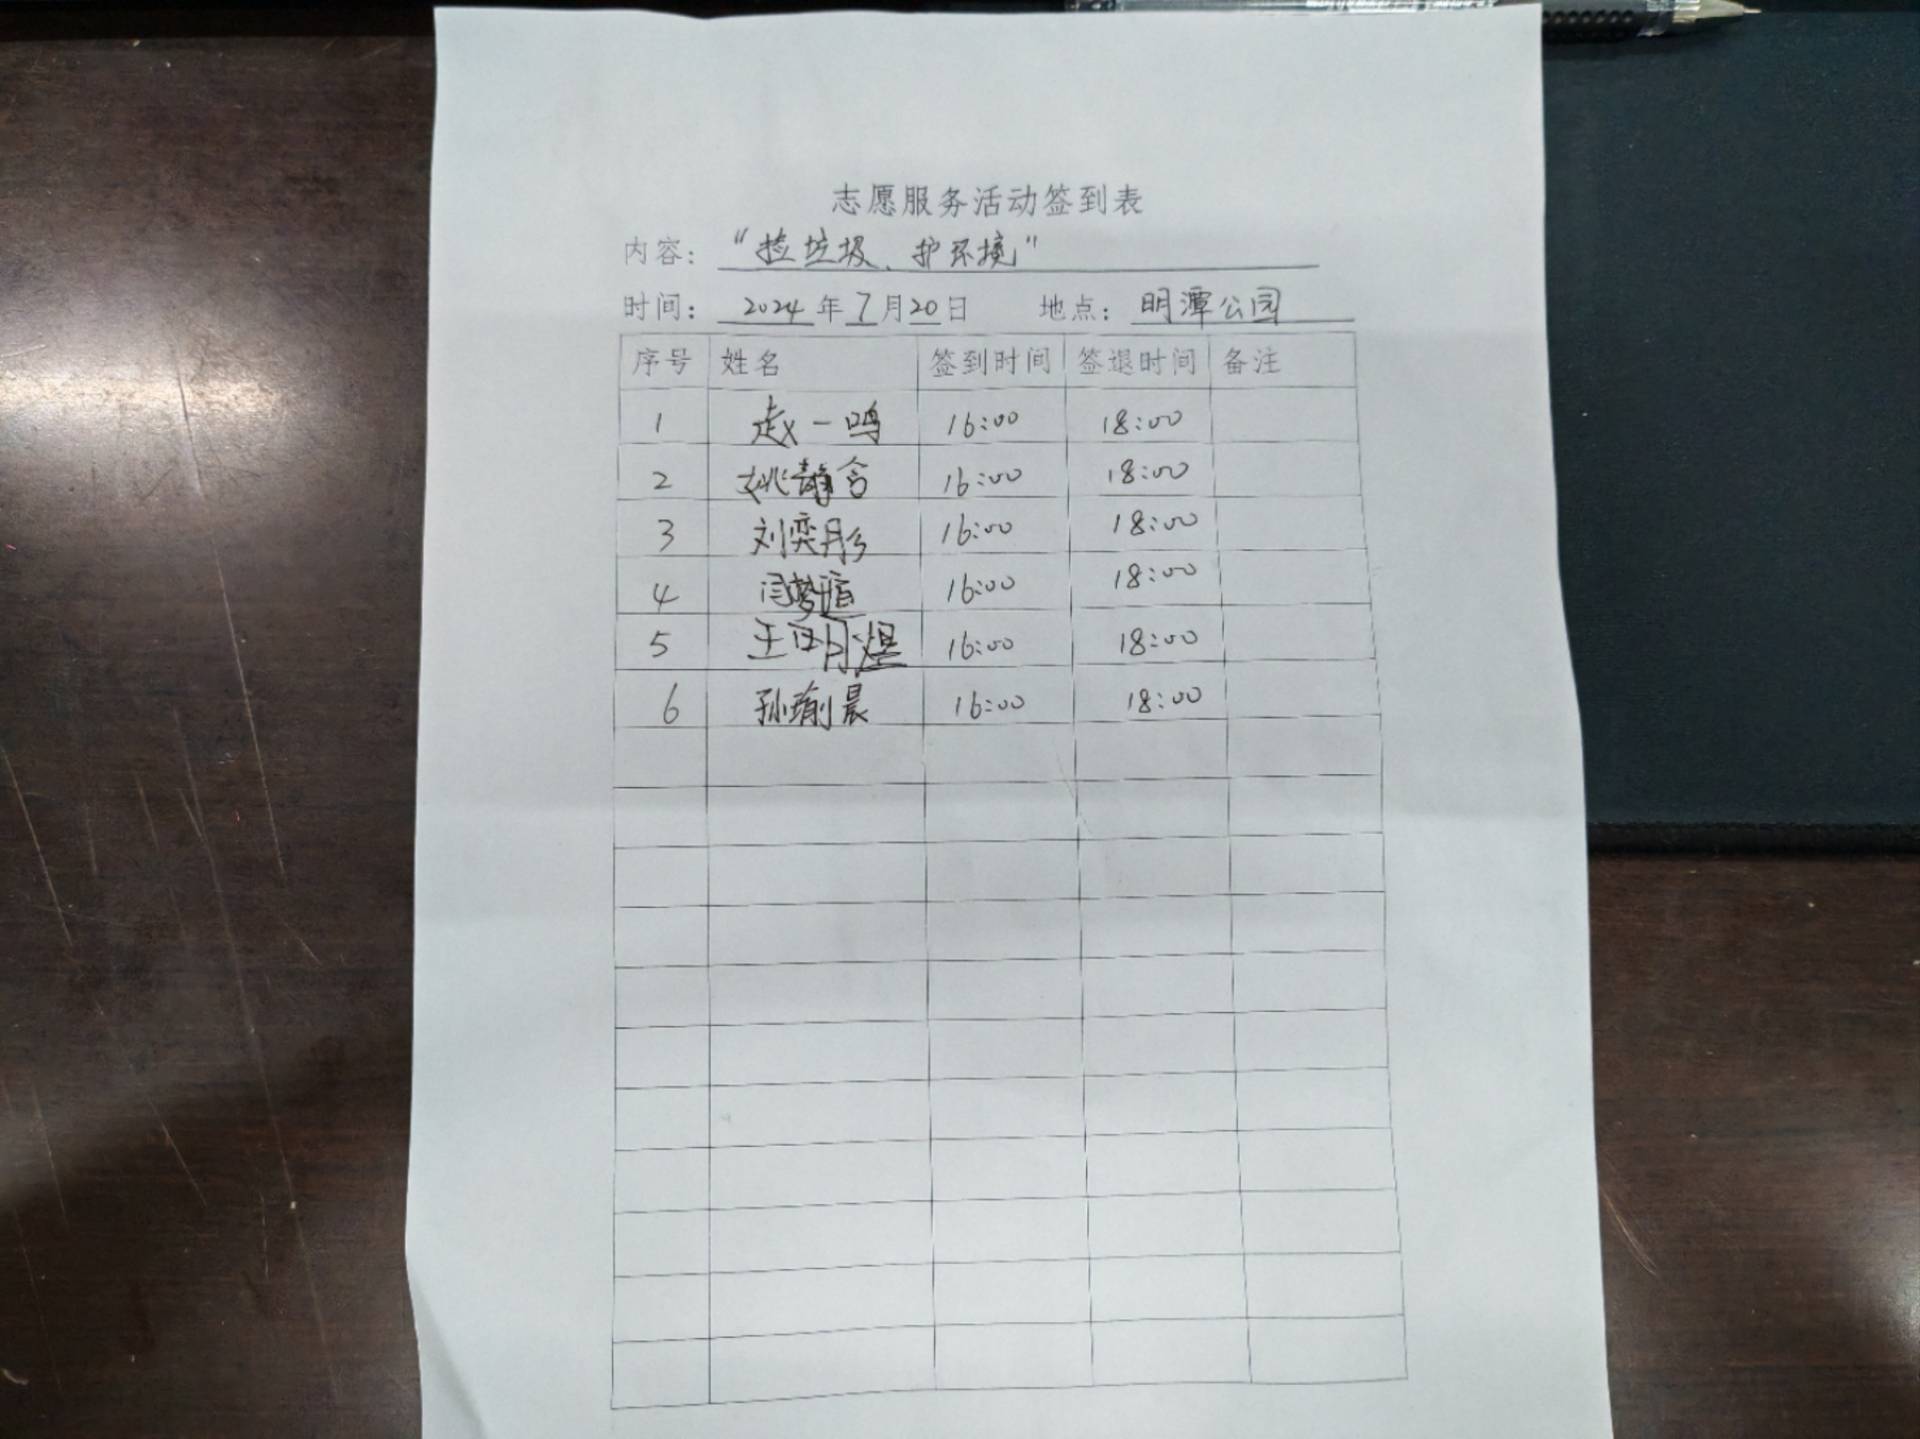 志愿服务活动签到表
内容：“捡垃圾、护环境”
时间：2024年7月20日 地点：明潭公园
序号 姓名 签到时间 签退时间 备注
1 赵一鸣 16:00 18:00
2 姚静含 16:00 18:00
3 刘奕彤 16:00 18:00
4 闫梦 16:00 18:00
5 王 16:00 18:00
6 孙瑜晨 16:00 18:00